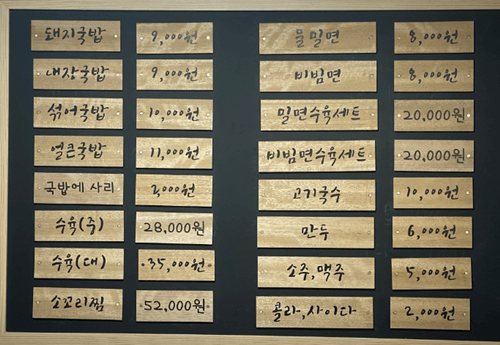 돼지국밥 9,000원
내장국밥 9,000원
섞어국밥 10,000원
얼큰국밥 11,000원
국밥에 사리 2,000원
수육(주) 28,000원
수육(대) 35,000원
소꼬리찜 52,000원
물밀면 8,000원
비빔면 8,000원
밀면수육세트 20,000원
비빔면수육세트 20,000원
고기국수 10,000원
만두 6,000원
소주,맥주 5,000원
콜라,사이다 2,000원